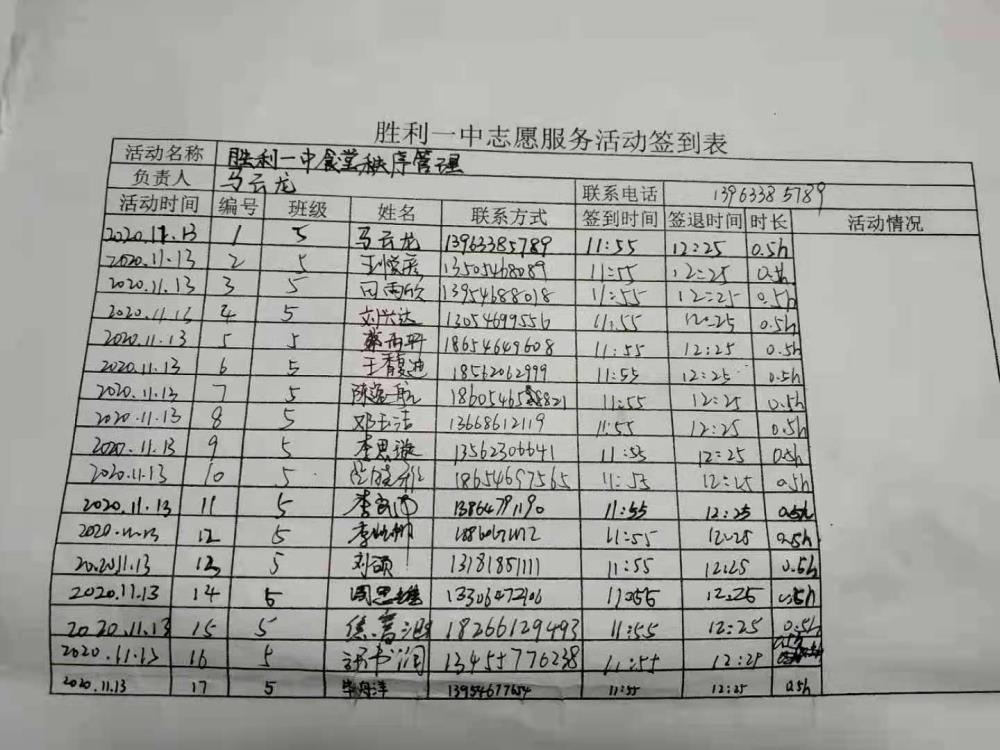 胜利一中志愿服务活动签到表
活动名称 胜利一中食堂秩序管理
负责人 马云龙 联系电话 13963385789
活动时间 编号 班级 姓名 联系方式 签到时间 签退时间 时长 活动情况
2020.11.13 1 5 马云龙 13963385789 11:55 12:25 0.5h
2020.11.13 2 5 13505468089 11:55 12:25 0.5h
2020.11.13 3 5 田雨欣 13954688018 11:55 12:25 0.5h
2020.11.13 4 5 刘兴达 13054699556 11:55 12:25 0.5h
2020.11.13 5 5 18654649608 11:55 12:25 0.5h
2020.11.13 6 5 王馥迪 18562062999 11:55 12:25 0.5h
2020.11.13 7 5 陈逸航 11:55 12:25 0.5h
2020.11.13 8 5 邓玉洁 13668612119 11:55 12:25 0.5h
2020.11.13 9 5 李思璇 13562306641 11:55 12:25 0.5h
2020.11.13 10 5 18654697565 11:55 12:25 0.5h
2020.11.13 11 5 13864791190 11:55 12:25 0.5h
12 5 11:55 12:25 0.5h
2020.11.13 13 5 刘硕 13181851111 11:55 12:25 0.5h
2020.11.13 14 5 周思维 13306472906 11:55 12:25 0.5h
2020.11.13 15 5 18266129493 11:55 12:25 0.5h
2020.11.13 16 5 13455776238 11:55 12:25 0.5h
2020.11.13 17 5 13954677654 11:55 12:25 0.5h